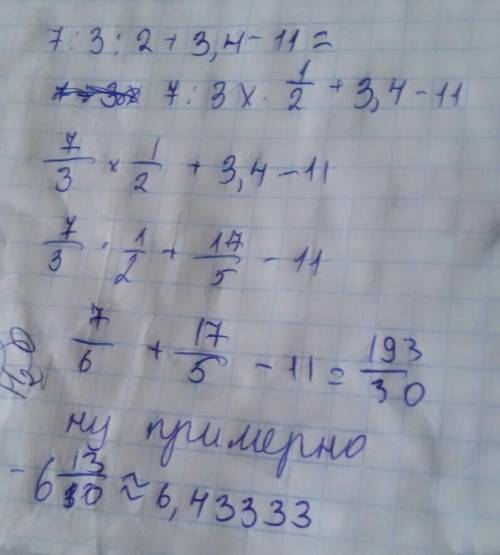 7 : 3 : 2 + 3,4 - 11 =
7 : 3 x · 1/2 + 3,4 - 11
7/3 x 1/2 + 3,4 - 11
7/3 · 1/2 + 17/5 - 11
H2O 7/6 + 17/5 - 11 = 193/30
ну примерно
- 6 13/30 ≈ 6,43333